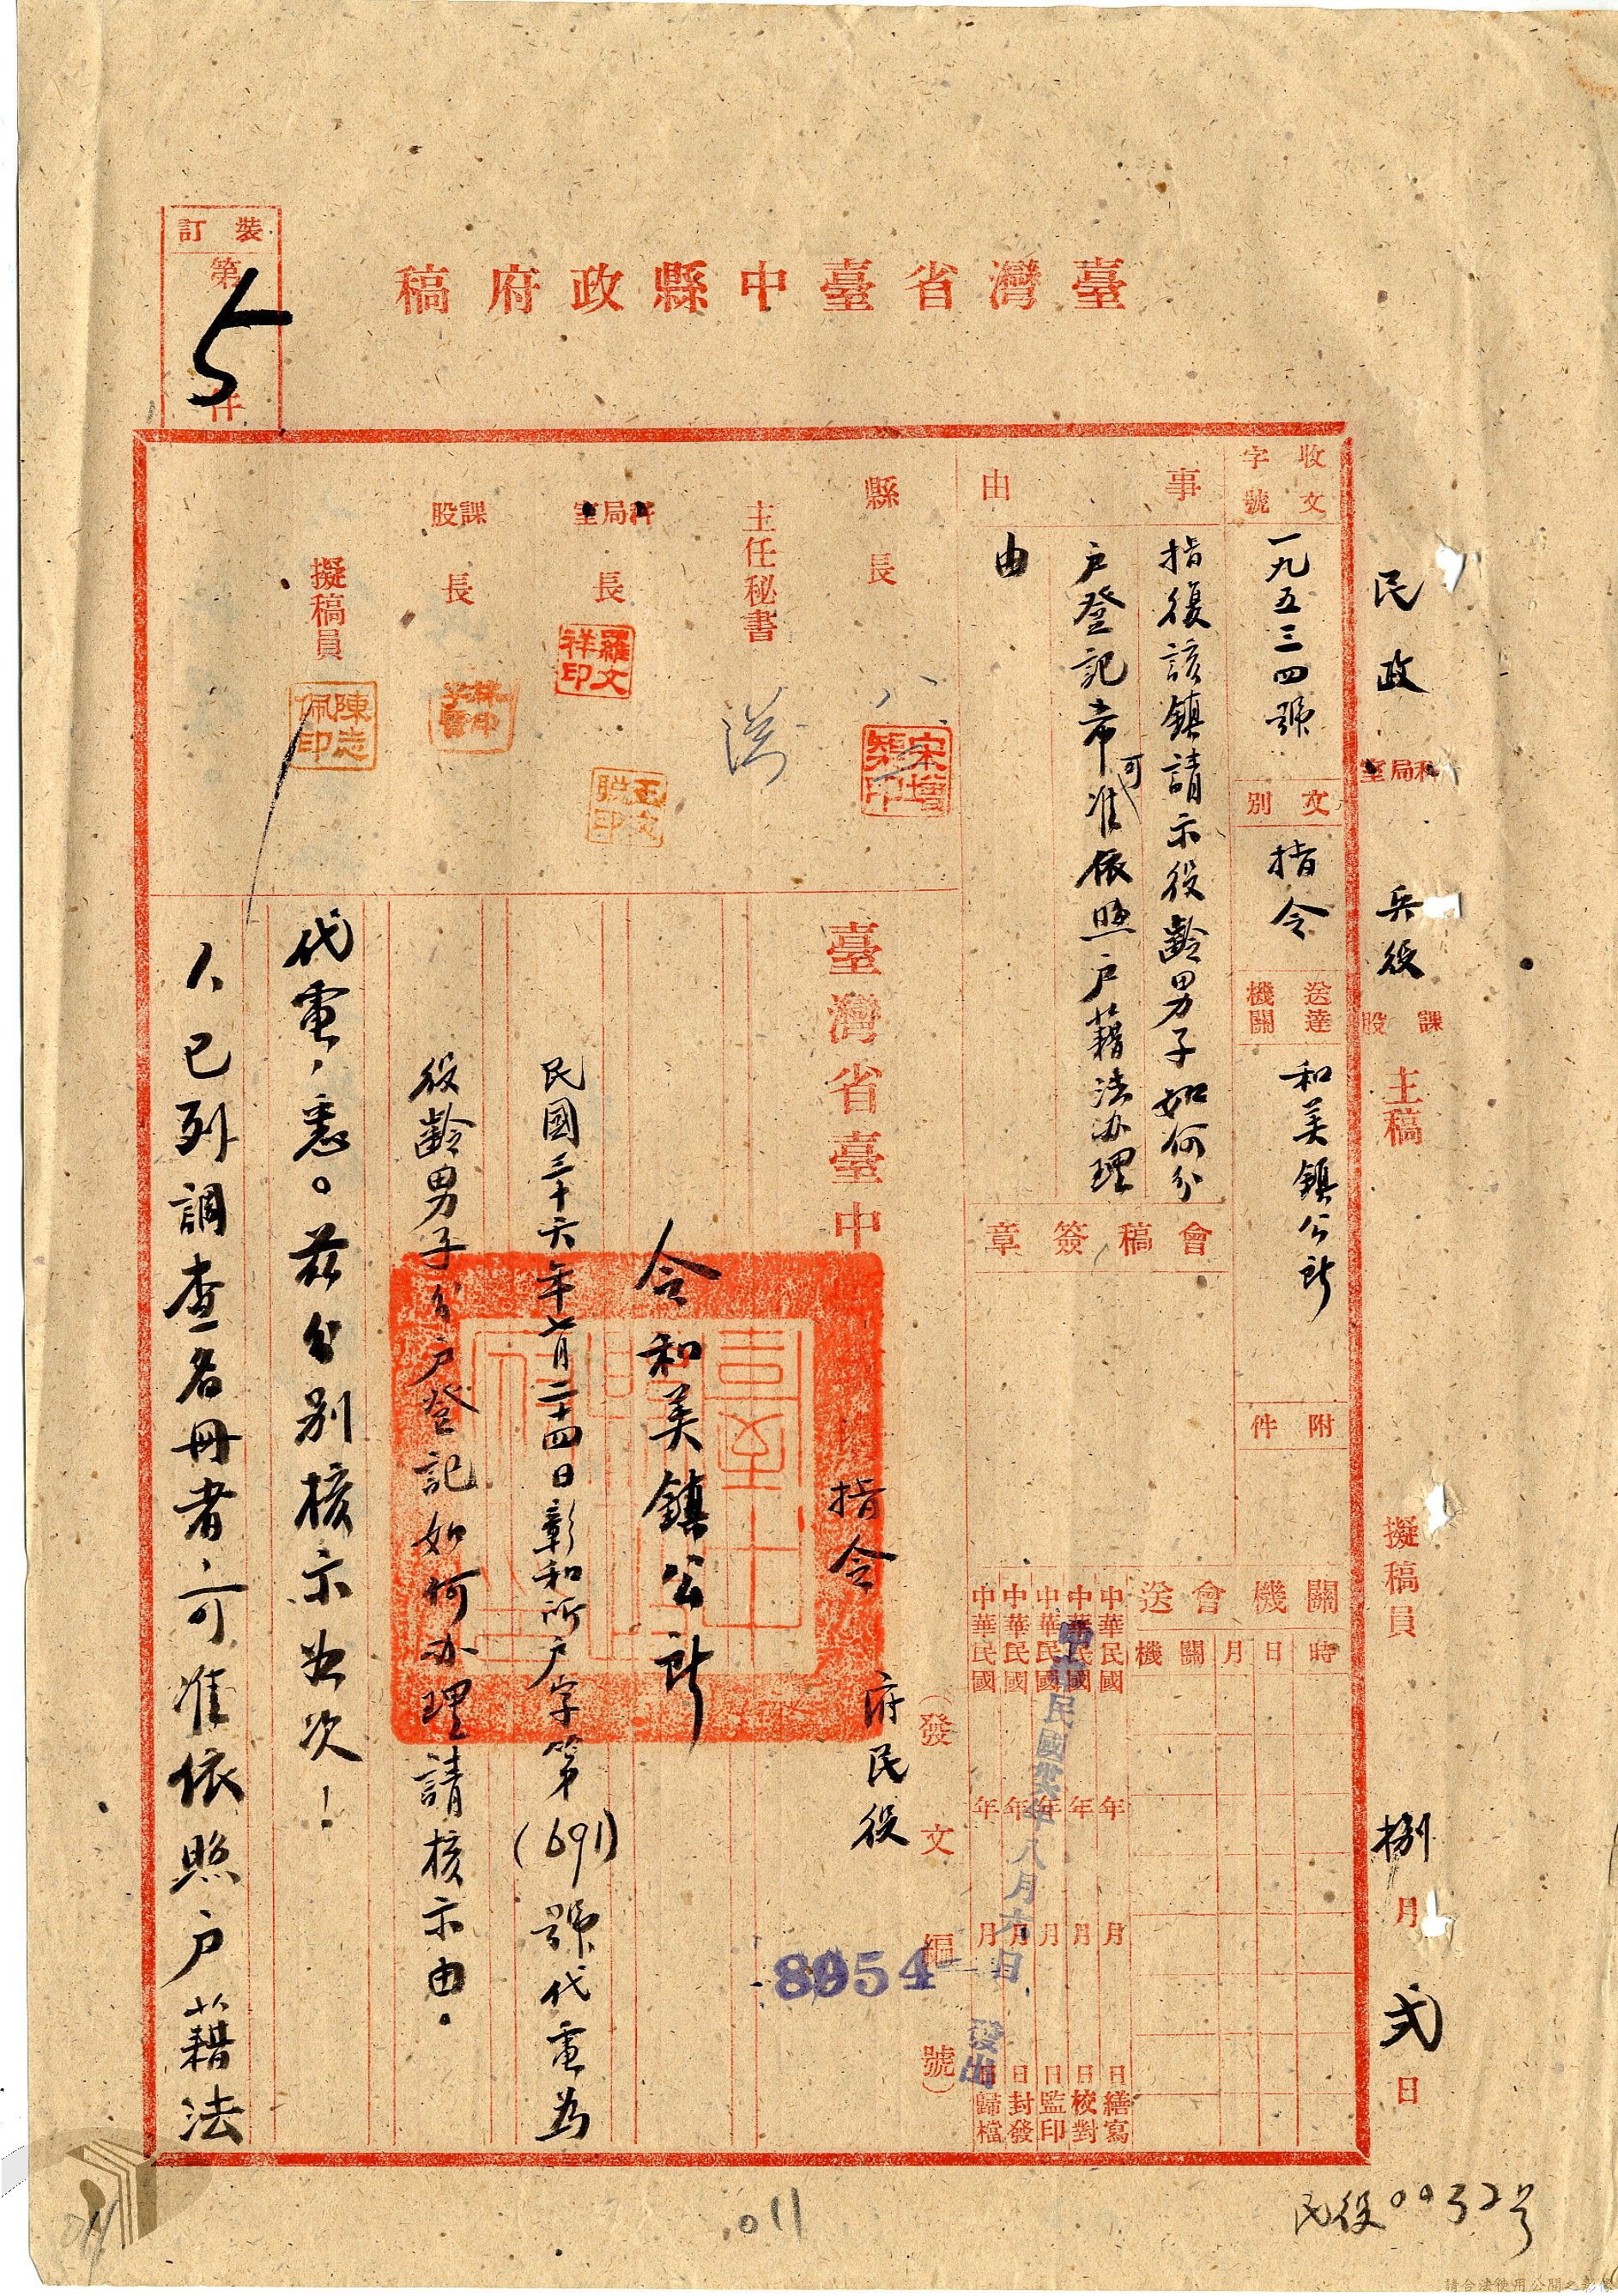 臺灣省臺中縣政府稿
裝訂
第
5
件
民政
科局室
兵役
課股
主稿
擬稿員
捌月弍日
收文字號
一九五三四號
文別
指令
送達機關
和美鎮公所
附件
事由
指復該鎮請示役齡男子如何分
戶登記希可准依照戶籍法办理
由
會稿簽章
縣長
八
宋增榘印
主任秘書
科局室長
羅文祥印
課股長
擬稿員
陳志佩印
關機會送
時日月關機
中華民國 年 月 日繕寫
中華民國 年 月 日校對
中華民國 年 月 日監印
中華民國 年 月 日封發
中華民國 年 月 日歸檔
中華民國卅六年八月六日
發出
(發文編號)
8054
臺灣省臺中
指令
府民役
令和美鎮公所
民國三十六年七月二十四日彰和所戶字第(691)號代電為
役齡男子分戶登記如何办理請核示由。
代電,悉。茲分別核示如次!
人已列調查名冊者可准依照戶籍法
011
民役0032号
請合法使用公開之影像